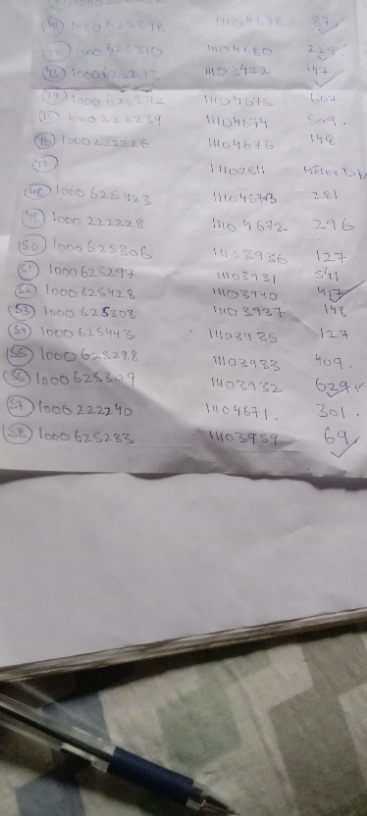 (41) 1000625398 11104678 87 ✓
1000625810 11104680 227 ✓
(43) 11103972 147 ✓
(44) 1000625292 11104675 607
(45) 1000222239 11104674 509.
(46) 1000222226 11104676 148
(47)
(48) 1000625423 11104673 281
(49) 1000222228 11104672 296
(50) 1000625306 11103936 127
(51) 1000625297 11103931 541
(52) 1000625428 11103940 417 ✓
(53) 1000625308 11103937 148
(54) 1000625443 11103935 127
(55) 1000625288 11103933 409.
(56) 1000625309 11103932 629 ✓
(57) 1000222240 11104671. 301.
(58) 1000625283 11103959 69 ✓